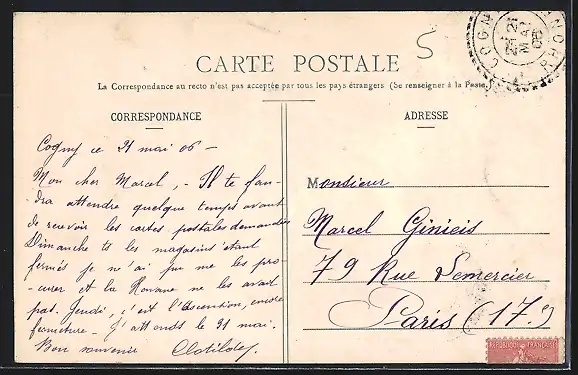 CARTE POSTALE
La Correspondance au recto n'est pas acceptée par tous les pays étrangers (Se renseigner à la Poste.)
CORRESPONDANCE
Cogny ce 21 mai 06 -
Mon cher Marcel, - Il te fau-
dra attendre quelque temps avant
de recevoir les cartes postales demandées
Dimanche ts les magasins étant
fermés je n'ai pu me les pro-
curer et la Rouane ne les avait
pas. Jeudi, c'est l'Ascension, encore
fermeture - J'attends le 31 mai.
Bon souvenir Clotilde
ADRESSE
Monsieur
Marcel Ginieis
79 Rue Lemercier
Paris (17.e)
COGNY
RHONE
21
MAI
06
5
REPUBLIQUE FRANÇAISE